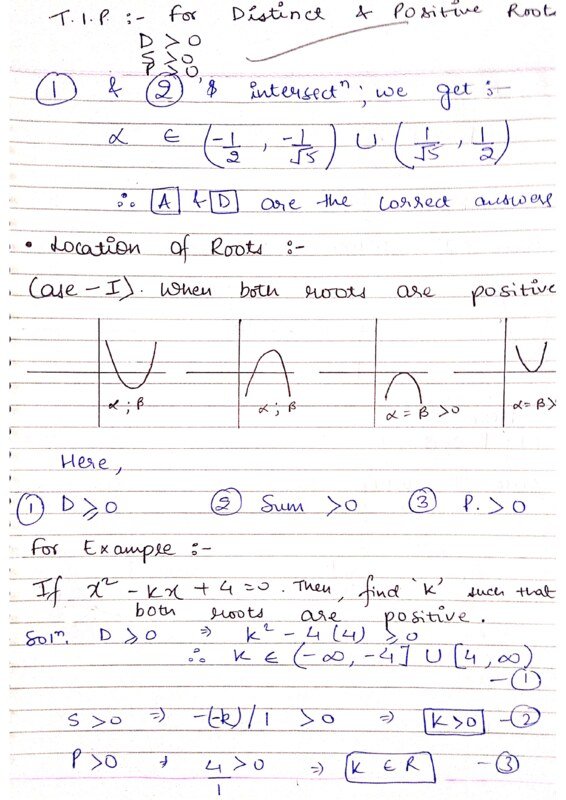 T.I.P. :- For Distinct & Positive Root
D > 0
S > 0
P > 0
① & ②'s intersectⁿ; we get :-
α ∈ (-1/2 , -1/√5) ∪ (1/√5 , 1/2)
∴ [A] & [D] are the correct answers
• Location of Roots :-
Case - I). When both roots are positive
α ; β α ; β α = β > 0 α = β >
Here,
① D ≥ 0 ② Sum > 0 ③ P. > 0
For Example :-
If x² - kx + 4 = 0. Then, find 'K' such that
both roots are positive.
Solⁿ. D ≥ 0 ⇒ k² - 4(4) ≥ 0
∴ K ∈ (-∞, -4] ∪ [4, ∞)
- ①
S > 0 ⇒ -(-k)/1 > 0 ⇒ K > 0 - ②
P > 0 → 4/1 > 0 ⇒ K ∈ R - ③